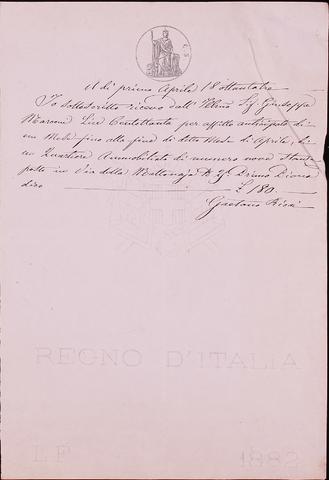 A dì primo Aprile 18 ottantatre
Io sottoscritto ricevo dall' Illmo Sg Giuseppe
Marconi Lire Centottanta per affitto anticipato di
un Mese fino alla fine di detto Mese di Aprile, di
un Quartiere Ammobiliato di numero nove stanze
posto in Via della Mattonaja N. Primo Piano
dico £ 180.
Gaetano
REGNO D'ITALIA
L F 1882